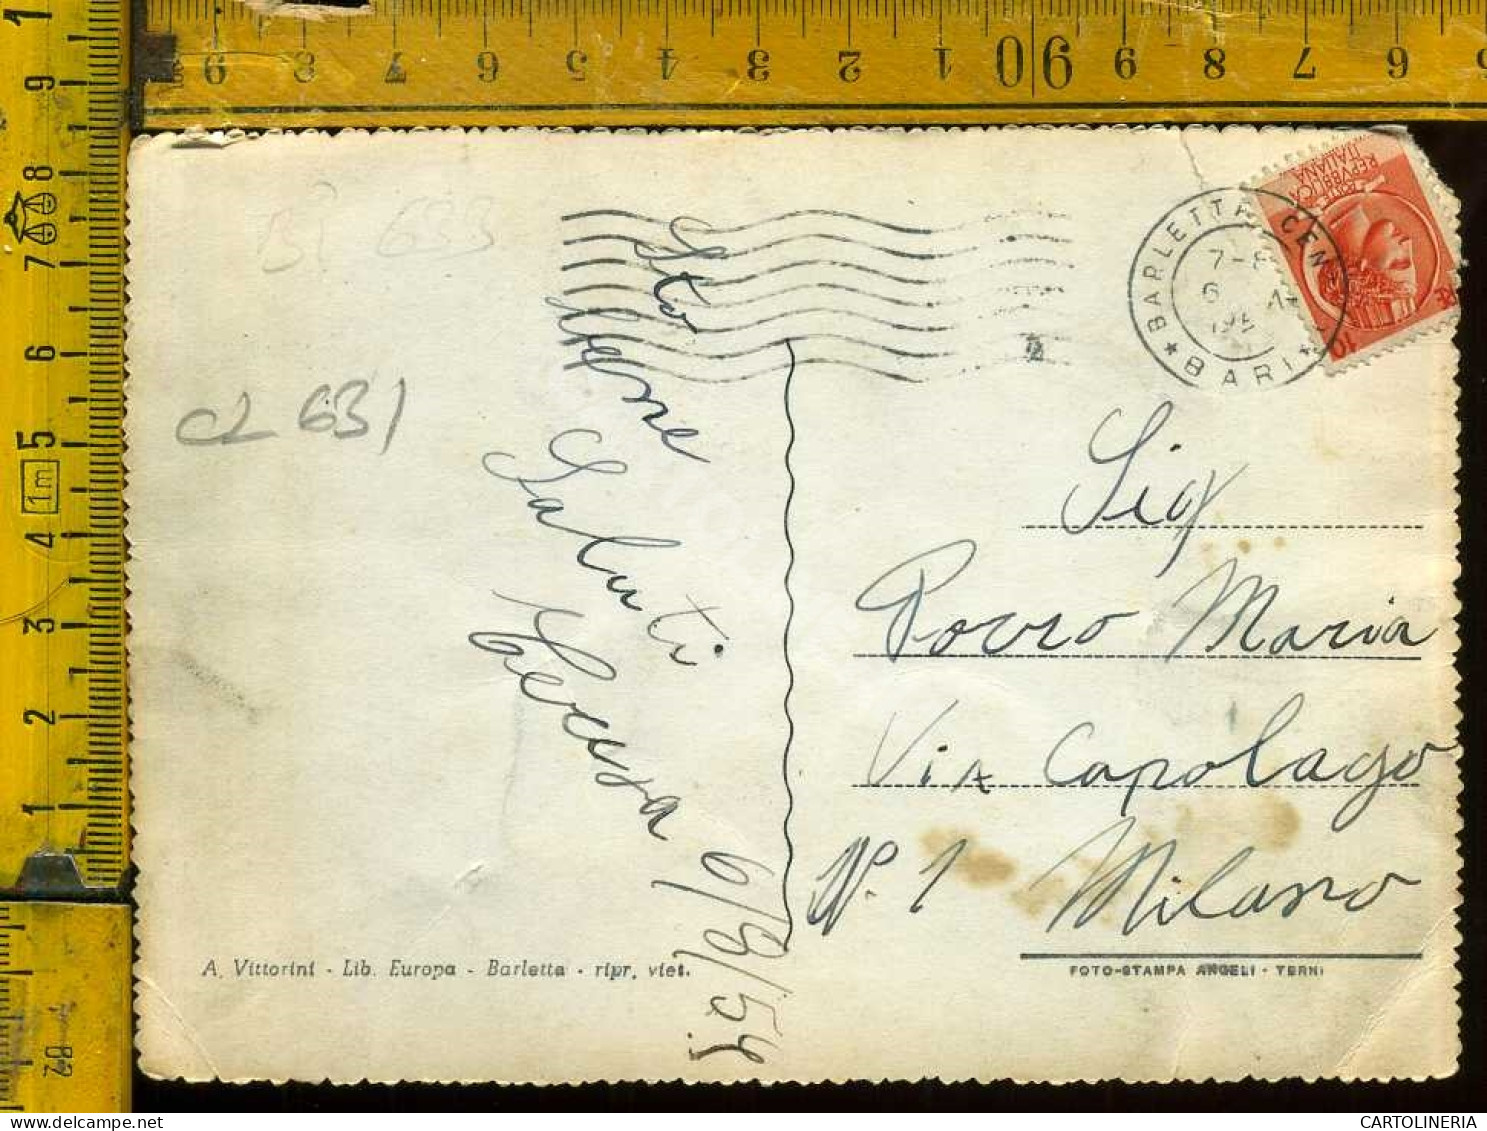 Bi 633
CL 631
Sto
bene
Saluti
6/8/54
BARLETTA CENTR
7-8
6
195
★ BARI ★
POSTE
REPVBBLICA
ITALIANA
10
Sig
Porro Maria
Via Capolago
N. 1 Milano
A. Vittorini - Lib. Europa - Barletta - ripr. viet.
FOTO-STAMPA ANGELI - TERNI
1 9 8 7 6 5 4 3 2 1
1m
9 8 7 6 5 4 3 2 1 90 9 8 7 6 5
82
www.delcampe.net
CARTOLINERIA